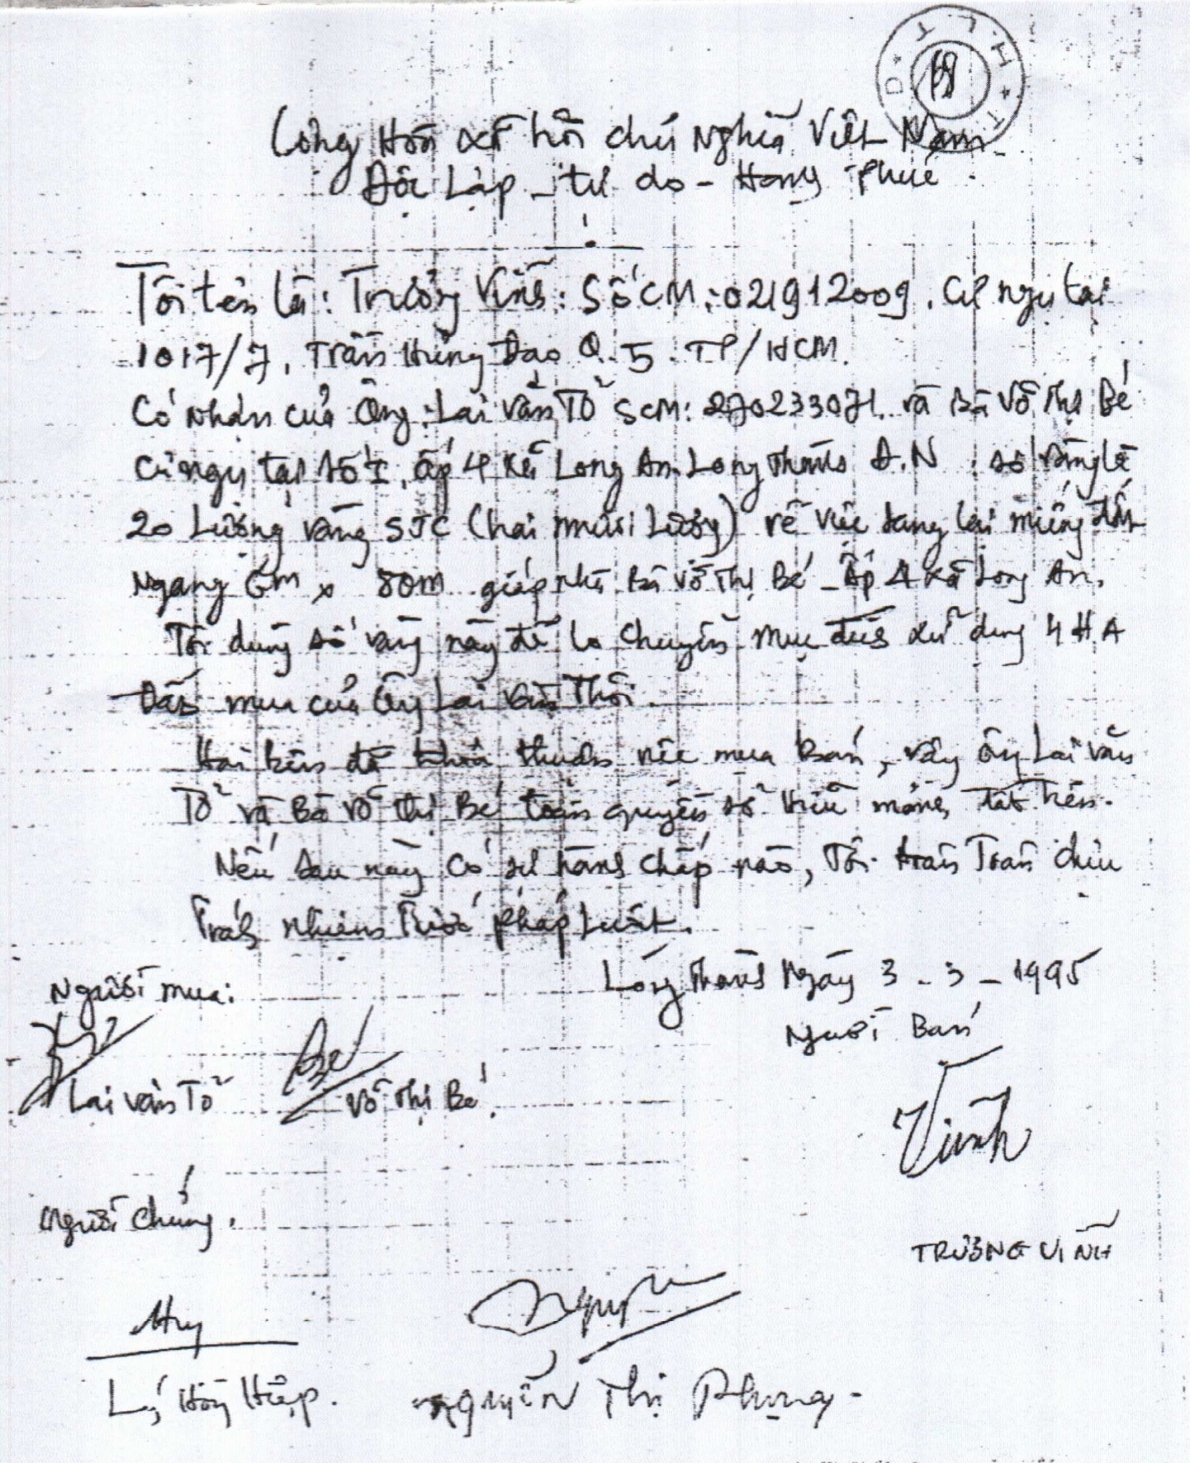 68
Cộng Hòa xã hội chủ Nghĩa Việt Nam
Độc Lập - tự do - Hạnh Phúc
Tôi tên là: Trương Vĩnh: Số CM: 021912009. Cư ngụ tại
1017/7, Trần Hưng Đạo Q. 5. TP/HCM.
Có nhận của Ông: Lại Văn Tổ Số CM: 270233071. và Bà Võ Thị Bé
Cư ngụ tại tổ I, ấp 4 xã Long An Long Thành Đ.N. số vàng là
20 Lượng vàng SJC (hai mươi Lượng) về việc sang lại miếng đất
Ngang 6m x 80m giáp nhà Bà Võ Thị Bé - Ấp 4 xã Long An.
Tôi dùng số vàng này để lo chuyển mục đích xử dụng 4 HA
Đất mua của Ông Lại Văn Thôi.
Hai bên đã thỏa thuận việc mua Bán, vậy ông Lại văn
Tổ và Bà Võ thị Bé toàn quyền sở hữu mảnh đất trên.
Nếu sau này có sự tranh chấp nào, Tôi hoàn Toàn chịu
Trách nhiệm trước pháp Luật.
Long Thành Ngày 3 - 3 - 1995
Người mua:
Người Bán
Bé
Lại văn Tổ
Võ Thị Bé.
Vĩnh
Người chứng.
TRƯƠNG VĨNH
Nguyễn Thị Phụng